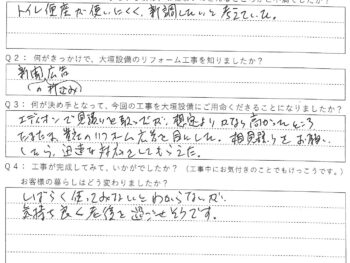 トイレ便座が使いにくく、新調したいと考えていた。
Q2: 何がきっかけで、大垣設備のリフォーム工事を知りましたか?
新聞広告
(の折込み)
Q3: 何が決め手となって、今回の工事を大垣設備にご用命くださることになりましたか?
エディオンで見積りを取ったが、想定よりかなり高かったところ
たまたま、貴社のリフォーム広告を目にした。相見積りをお願い
したら、迅速な対応をしてもらえた。
Q4: 工事が完成してみて、いかがでしたか?(工事中にお気付きのことでもけっこうです。)
お客様の暮らしはどう変わりましたか?
しばらく使ってみないとわからないが、
気持ち良く老後を過ごせそうです。